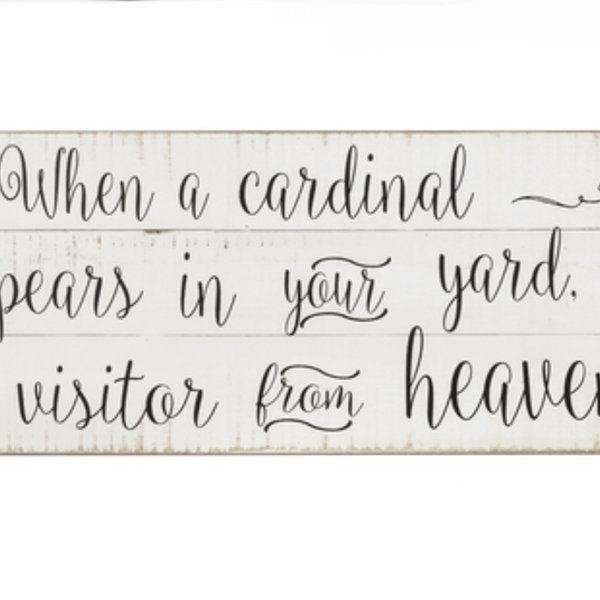 When a cardinal
pears in your yard.
visitor from heaven